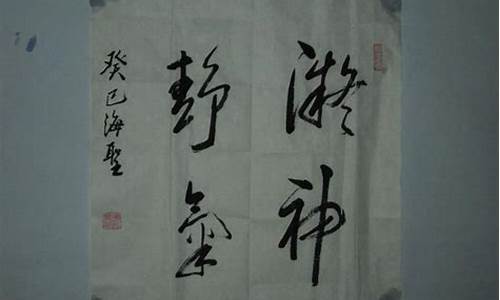 凝神
静氣
癸巳海聖